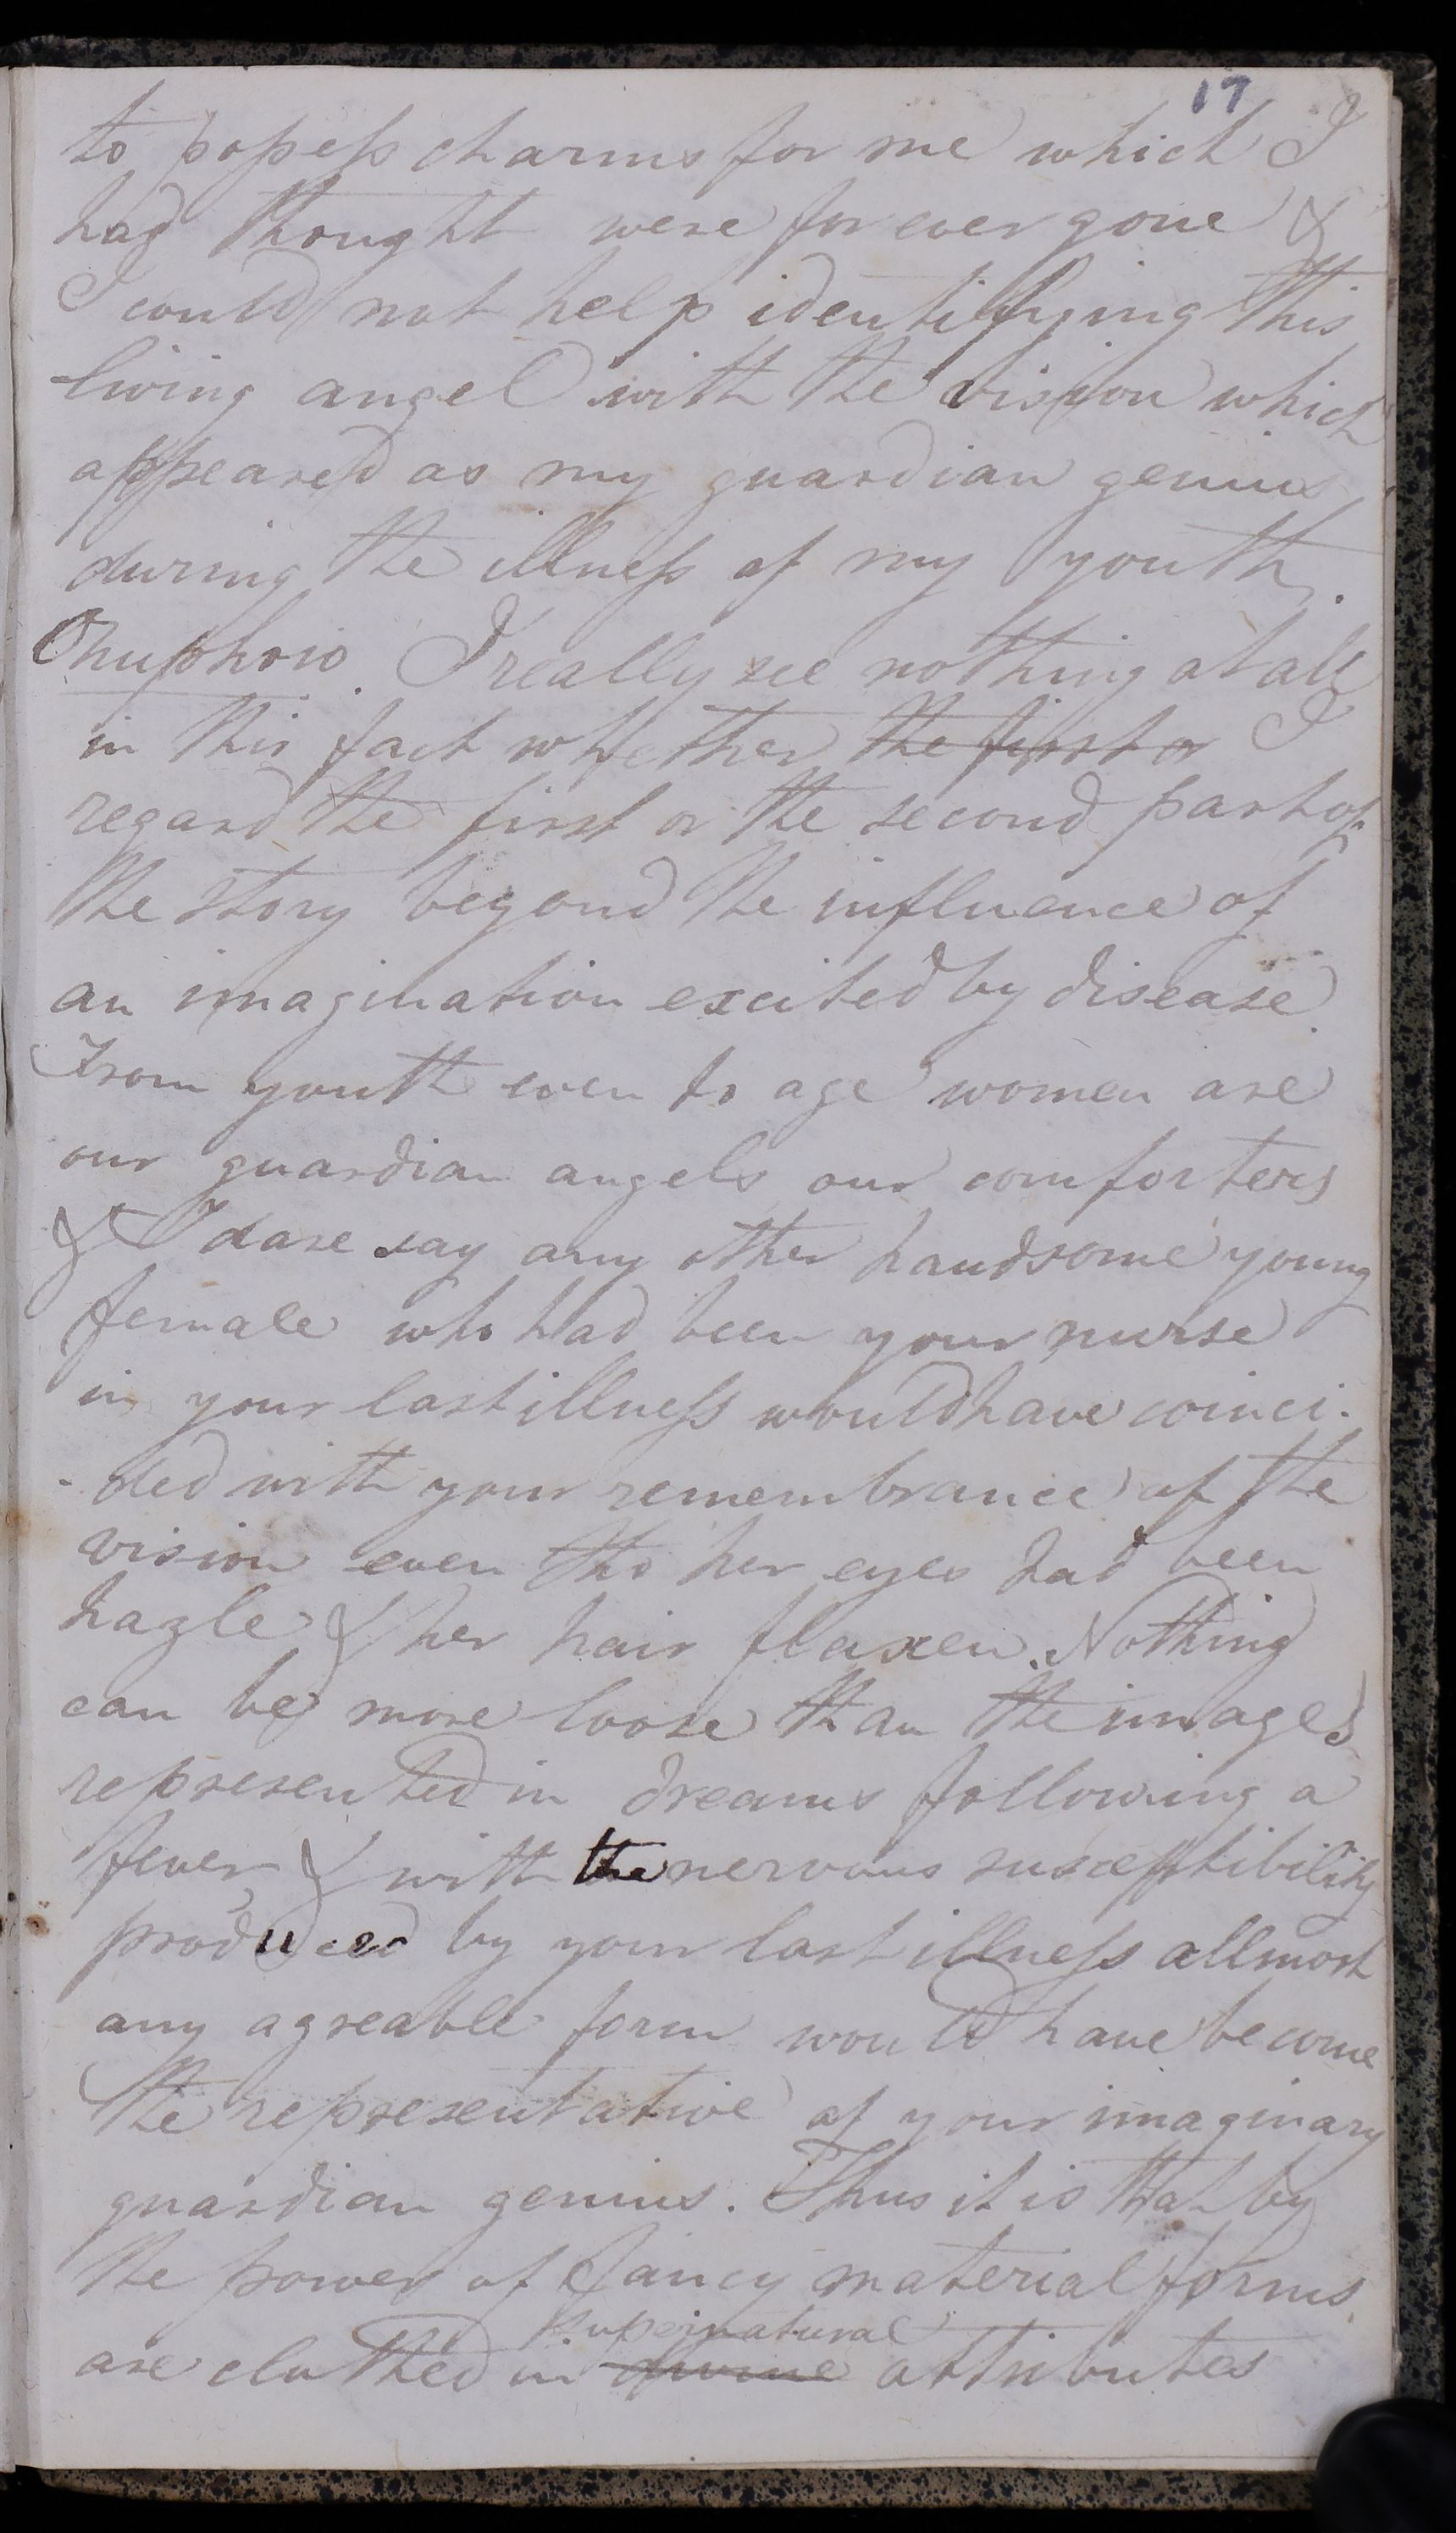 17
to possess charms for me which I
had thought were for ever gone &
I could not help identifying this
living angel with the vision which
appeared as my guardian genius
during the illness of my youth.
Onuphrio. I really see nothing at all
in this fact whether the first or I
regard the first or the second part of
the story beyond the influence of
an imagination excited by disease.
From youth even to age women are
our guardian angels our comforters
& I dare say any other handsome young
female who had been your nurse
in your last illness would have coinci-
-ded with your remembrance of the
vision even tho her eyes had been
hazle & her hair flaxen. Nothing
can be more loose than the images
represented in dreams following a
fever & with the nervous susceptibility
produced by your last illness allmost
any agreable form would have become
the representative of your imaginary
guardian genius. Thus it is that by
the power of fancy material forms
supernatural
are clothed in divine attributes